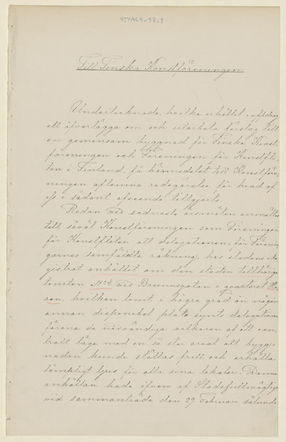 Till Finska Konstföreningen
Undertecknade, hvilka erhållit i uppdrag
att öfverlägga om och utarbeta förslag till
en gemensam byggnad för Finska Konst-
föreningen och Föreningen för Konstfli-
ten i Finland, få härmedelst till Konstföre-
ningen aflemna redogörelse för hvad af
oss i sådant afseende tillgjorts.
Redan vid sednaste årsmöten anmältes
till såväl Konstföreningen som Föreningen
för Konstfliten att delegationen för Förenin-
garnes samfälda räkning hos stadens Ma-
gistrat anhållit om den staden tillhöriga
tomten № 4 vid Brunnsgatan i qvarteret
hvilken tomt i högre grad än någon
annan disponibel plats synt delegationen
förena de nödvändiga vilkoren af ett cen-
tralt läge med en så stor areal att bygg-
naden kunde ställas fritt och erhålla
tillräckligt ljus för alla sina lokaler. Denna
anhållan hade äfven af Stadsfullmäktige
vid sammanträde den 29 Februari